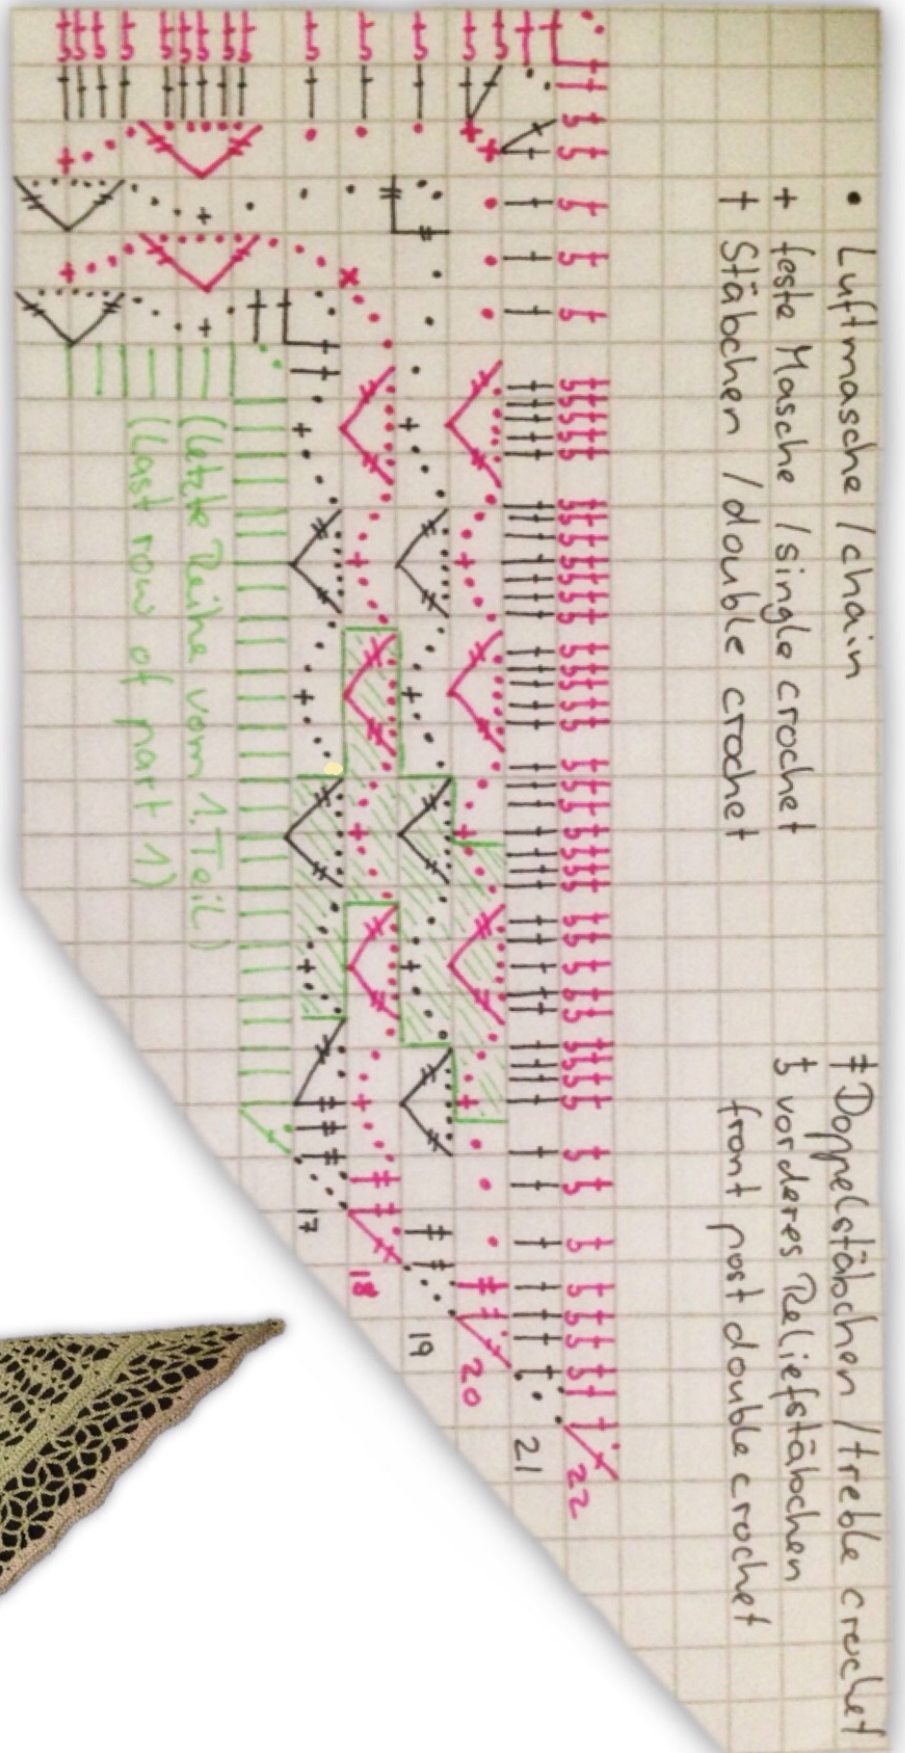 • Luftmasche / chain
+ feste Masche / single crochet
† Stäbchen / double crochet
‡ Doppelstäbchen / treble crochet
vorderes Reliefstäbchen
front post double crochet
22
21
20
19
18
17
(letzte Reihe vom 1. Teil)
(last row of part 1)